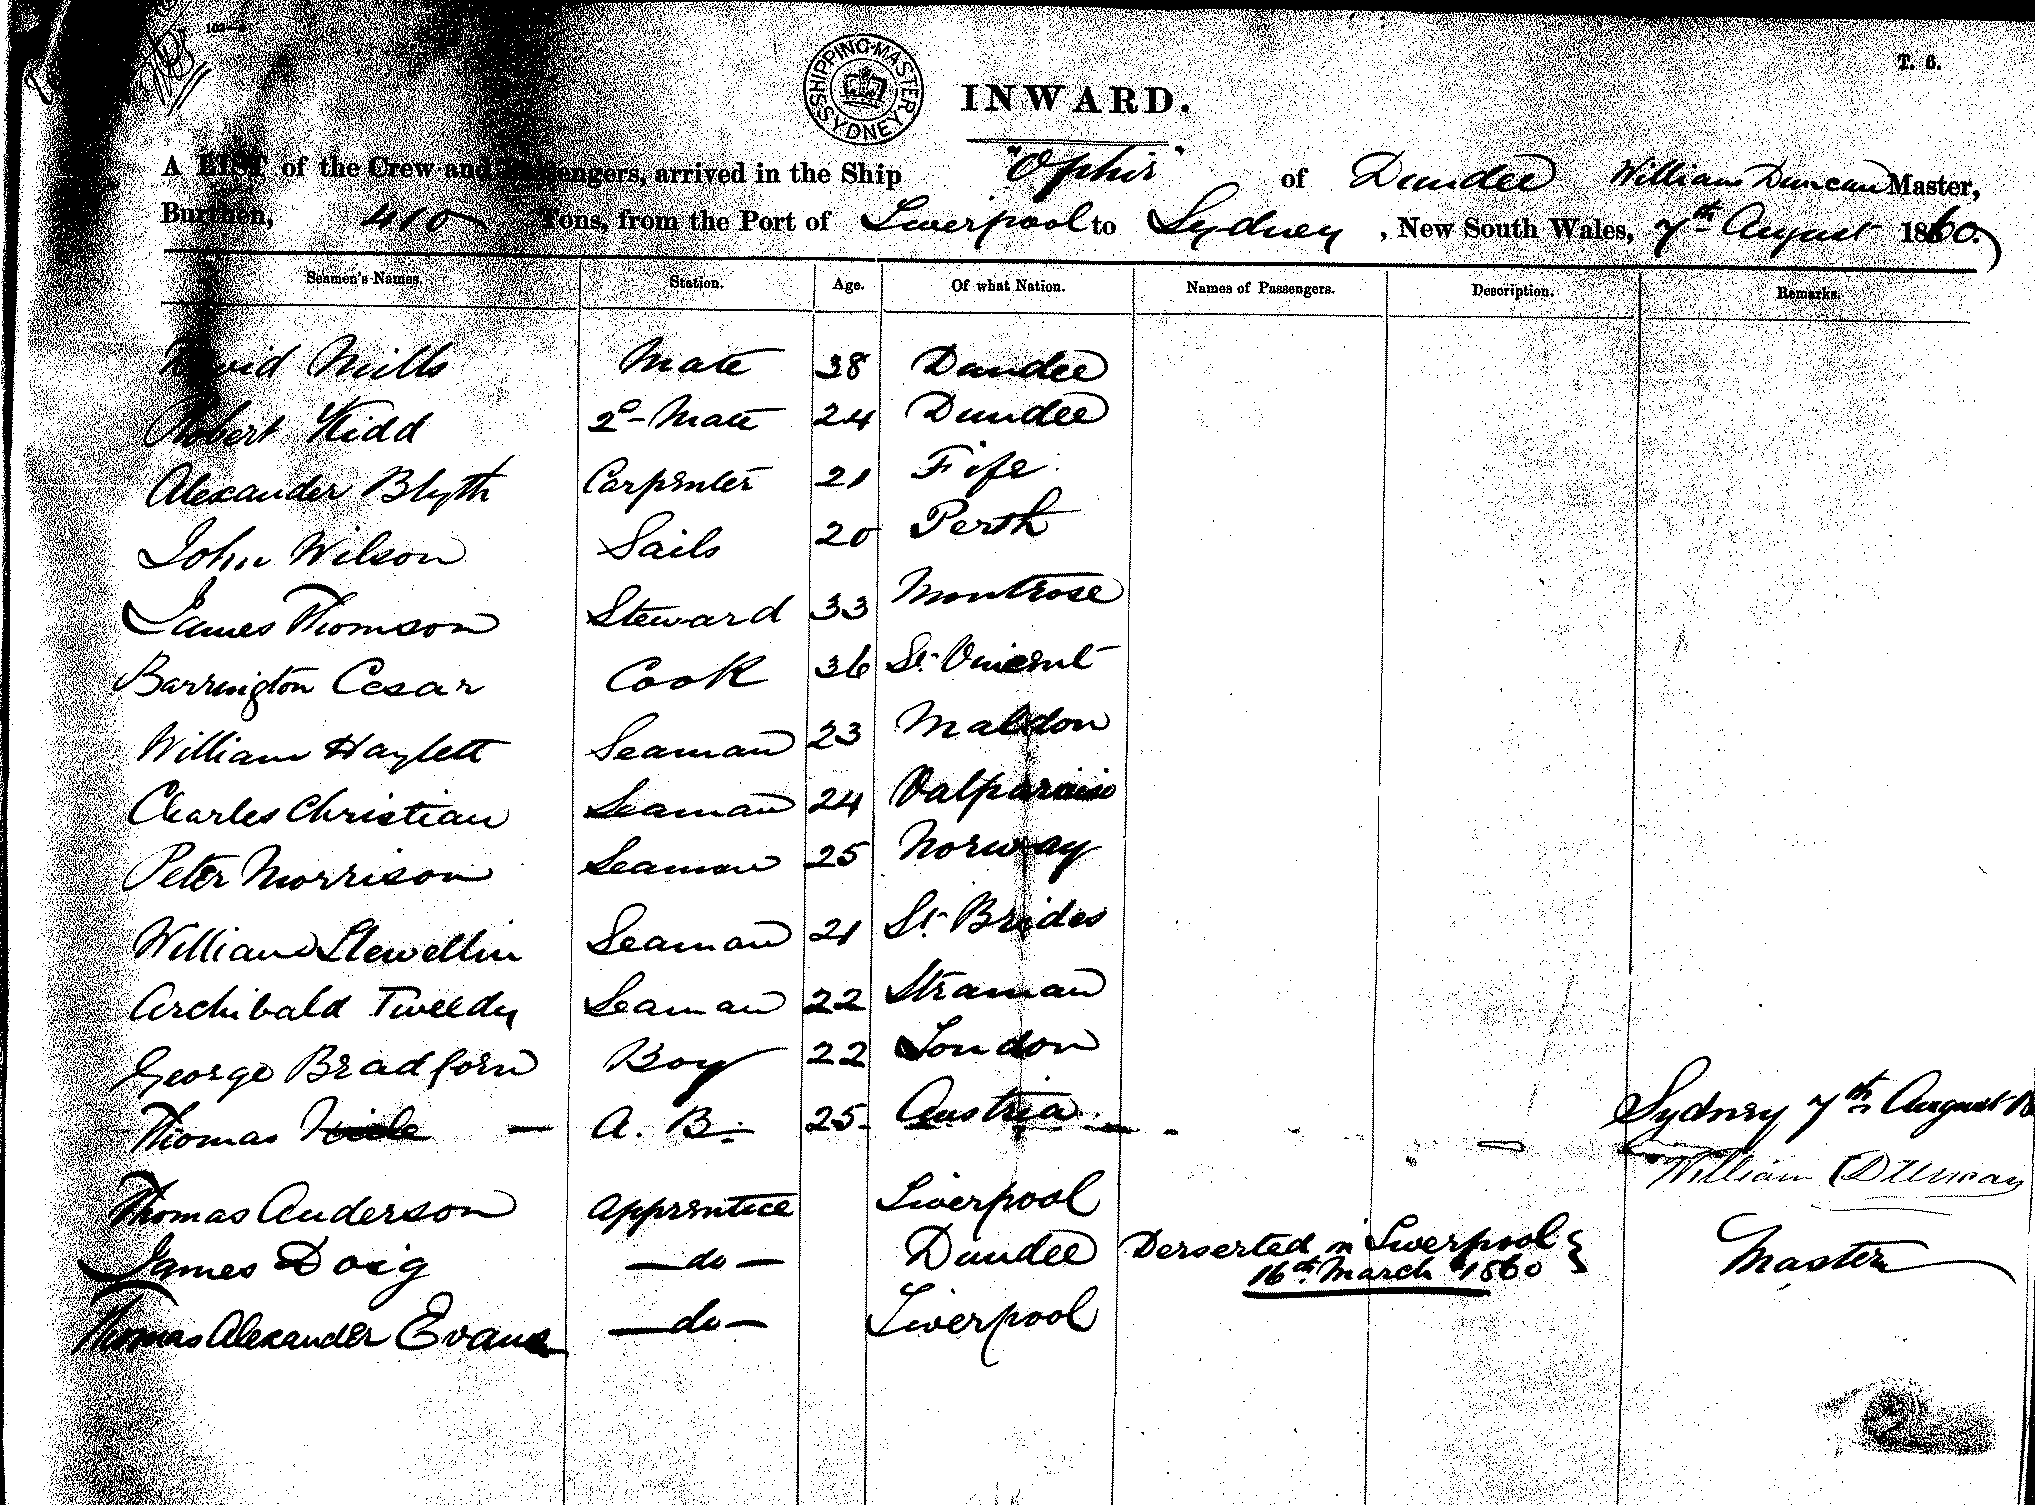 SHIPPING MASTER SYDNEY
T. 6.
INWARD.
A LIST of the Crew and Passengers, arrived in the Ship "Ophir" of Dundee William Duncan Master,
Burthen, 410 Tons, from the Port of Liverpool to Sydney, New South Wales, 7th August 1860.
Seamen's Names. Station. Age. Of what Nation. Names of Passengers. Description. Remarks.
David Mills Mate 38 Dundee
Robert Kidd 2d Mate 24 Dundee
Alexander Blyth Carpenter 21 Fife
John Wilson Sails 20 Perth
James Thomson Steward 33 Montrose
Barrington Cesar Cook 36 St. Vincent
William Haylett Seaman 23 Maldon
Charles Christian Seaman 24 Valparaiso
Peter Morrison Seaman 25 Norway
William Llewellin Seaman 21 St. Brides
Archibald Tweedy Seaman 22 Straman
George Bradforn Boy 22 London
Thomas — A. B. 25 Austria Sydney 7th August 18
William Duncan
Thomas Anderson Apprentice Liverpool
James Doig —do— Dundee Derserted in Liverpool } Master
16th March 1860
Thomas Alexander Evans —do— Liverpool